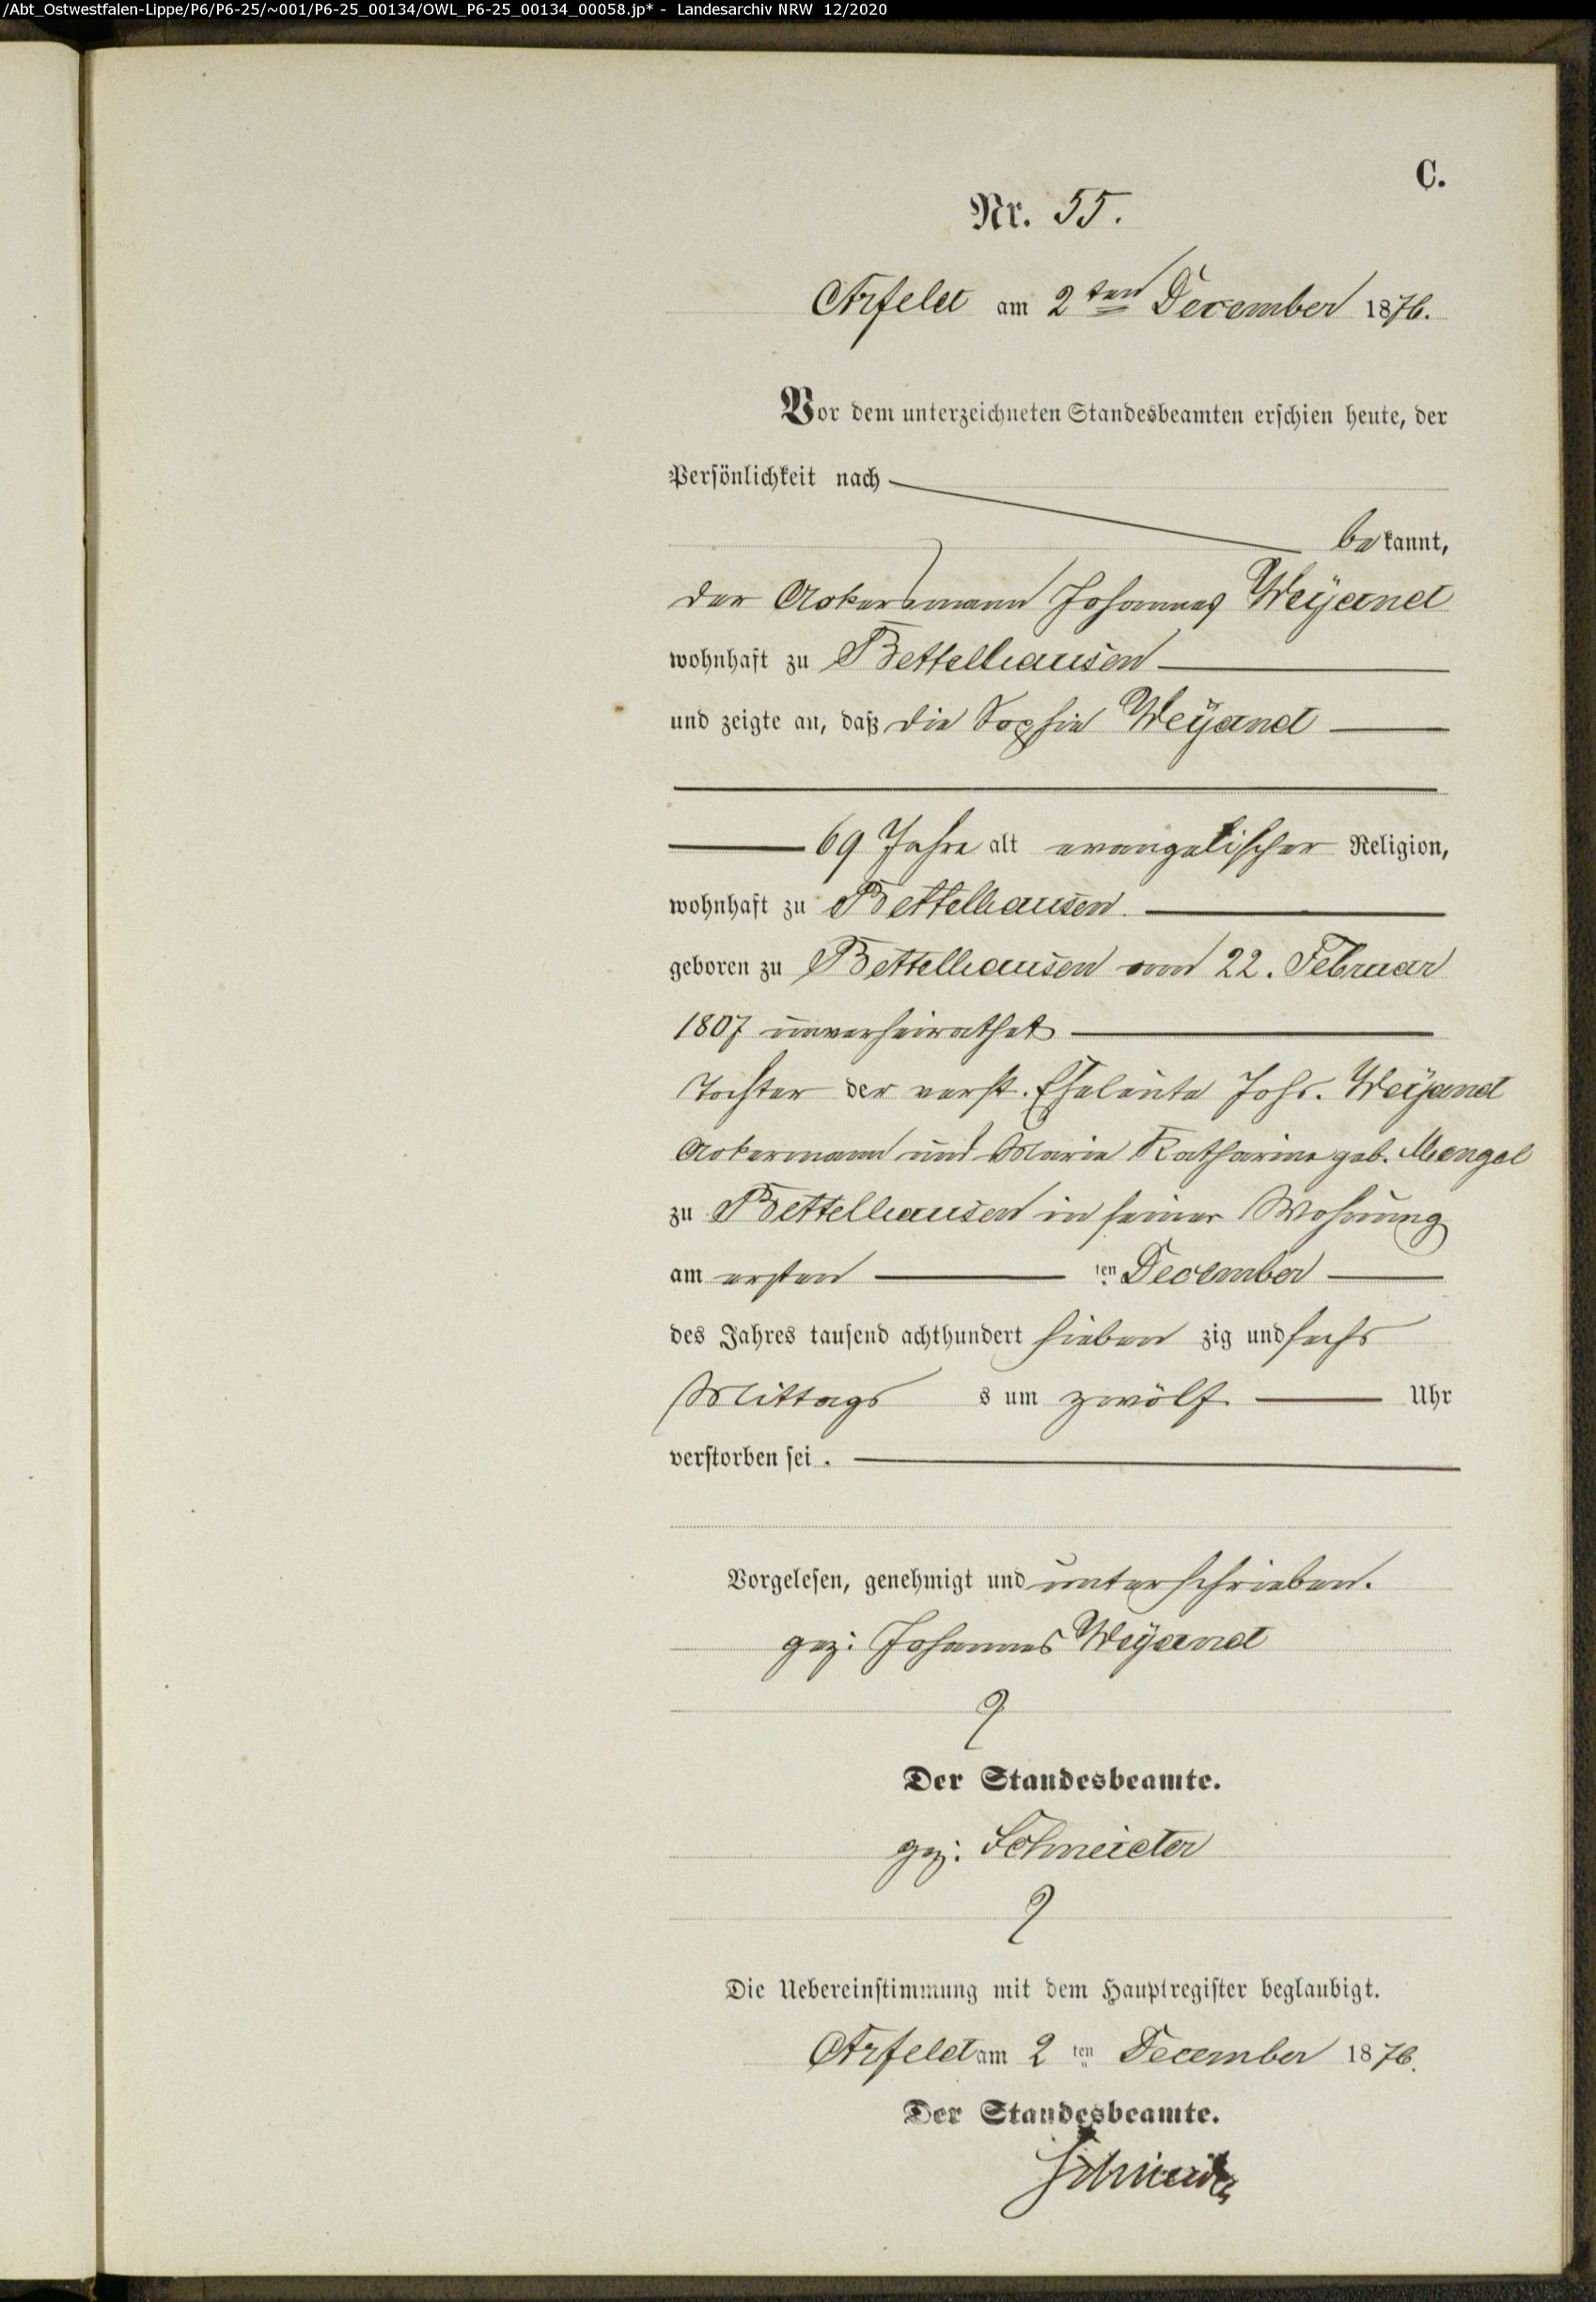 /Abt_Ostwestfalen-Lippe/P6/P6-25/~001/P6-25_00134/OWL_P6-25_00134_00058.jp* - Landesarchiv NRW 12/2020
C.
Nr. 55.
Arfeld am 2ten December 1876.
Vor dem unterzeichneten Standesbeamten erschien heute, der
Persönlichkeit nach
bekannt,
der Ackersmann Johannes Weÿand
wohnhaft zu Bettelhausen
und zeigte an, daß die Sophie Weÿand
69 Jahre alt evangelischer Religion,
wohnhaft zu Bettelhausen
geboren zu Bettelhausen am 22. Februar
1807 unverheirathet
Tochter der verst. Eheleute Johs. Weÿand
Ackermann und Marie Katharine geb. Mengel
zu Bettelhausen in seiner Wohnung
am ersten ten December
des Jahres tausend achthundert sieben zig und sechs
Mittags s um zwölf Uhr
verstorben sei.
Vorgelesen, genehmigt und unterschrieben.
gez: Johannes Weÿand
Der Standesbeamte.
gez: Schneider
Die Uebereinstimmung mit dem Hauptregister beglaubigt.
Arfeld am 2 ten December 1876.
Der Standesbeamte.
Schneider